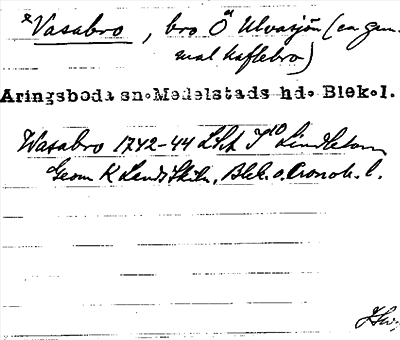 Vasabro, bro Ö Ulvasjön (en gam-
mal kaflebro)
Aringsboda sn. Medelstads hd. Blek.l.
Wasabro 1742-44 Lindlekom
Geom K Landtskiln, Blek. o. Cronob. l.